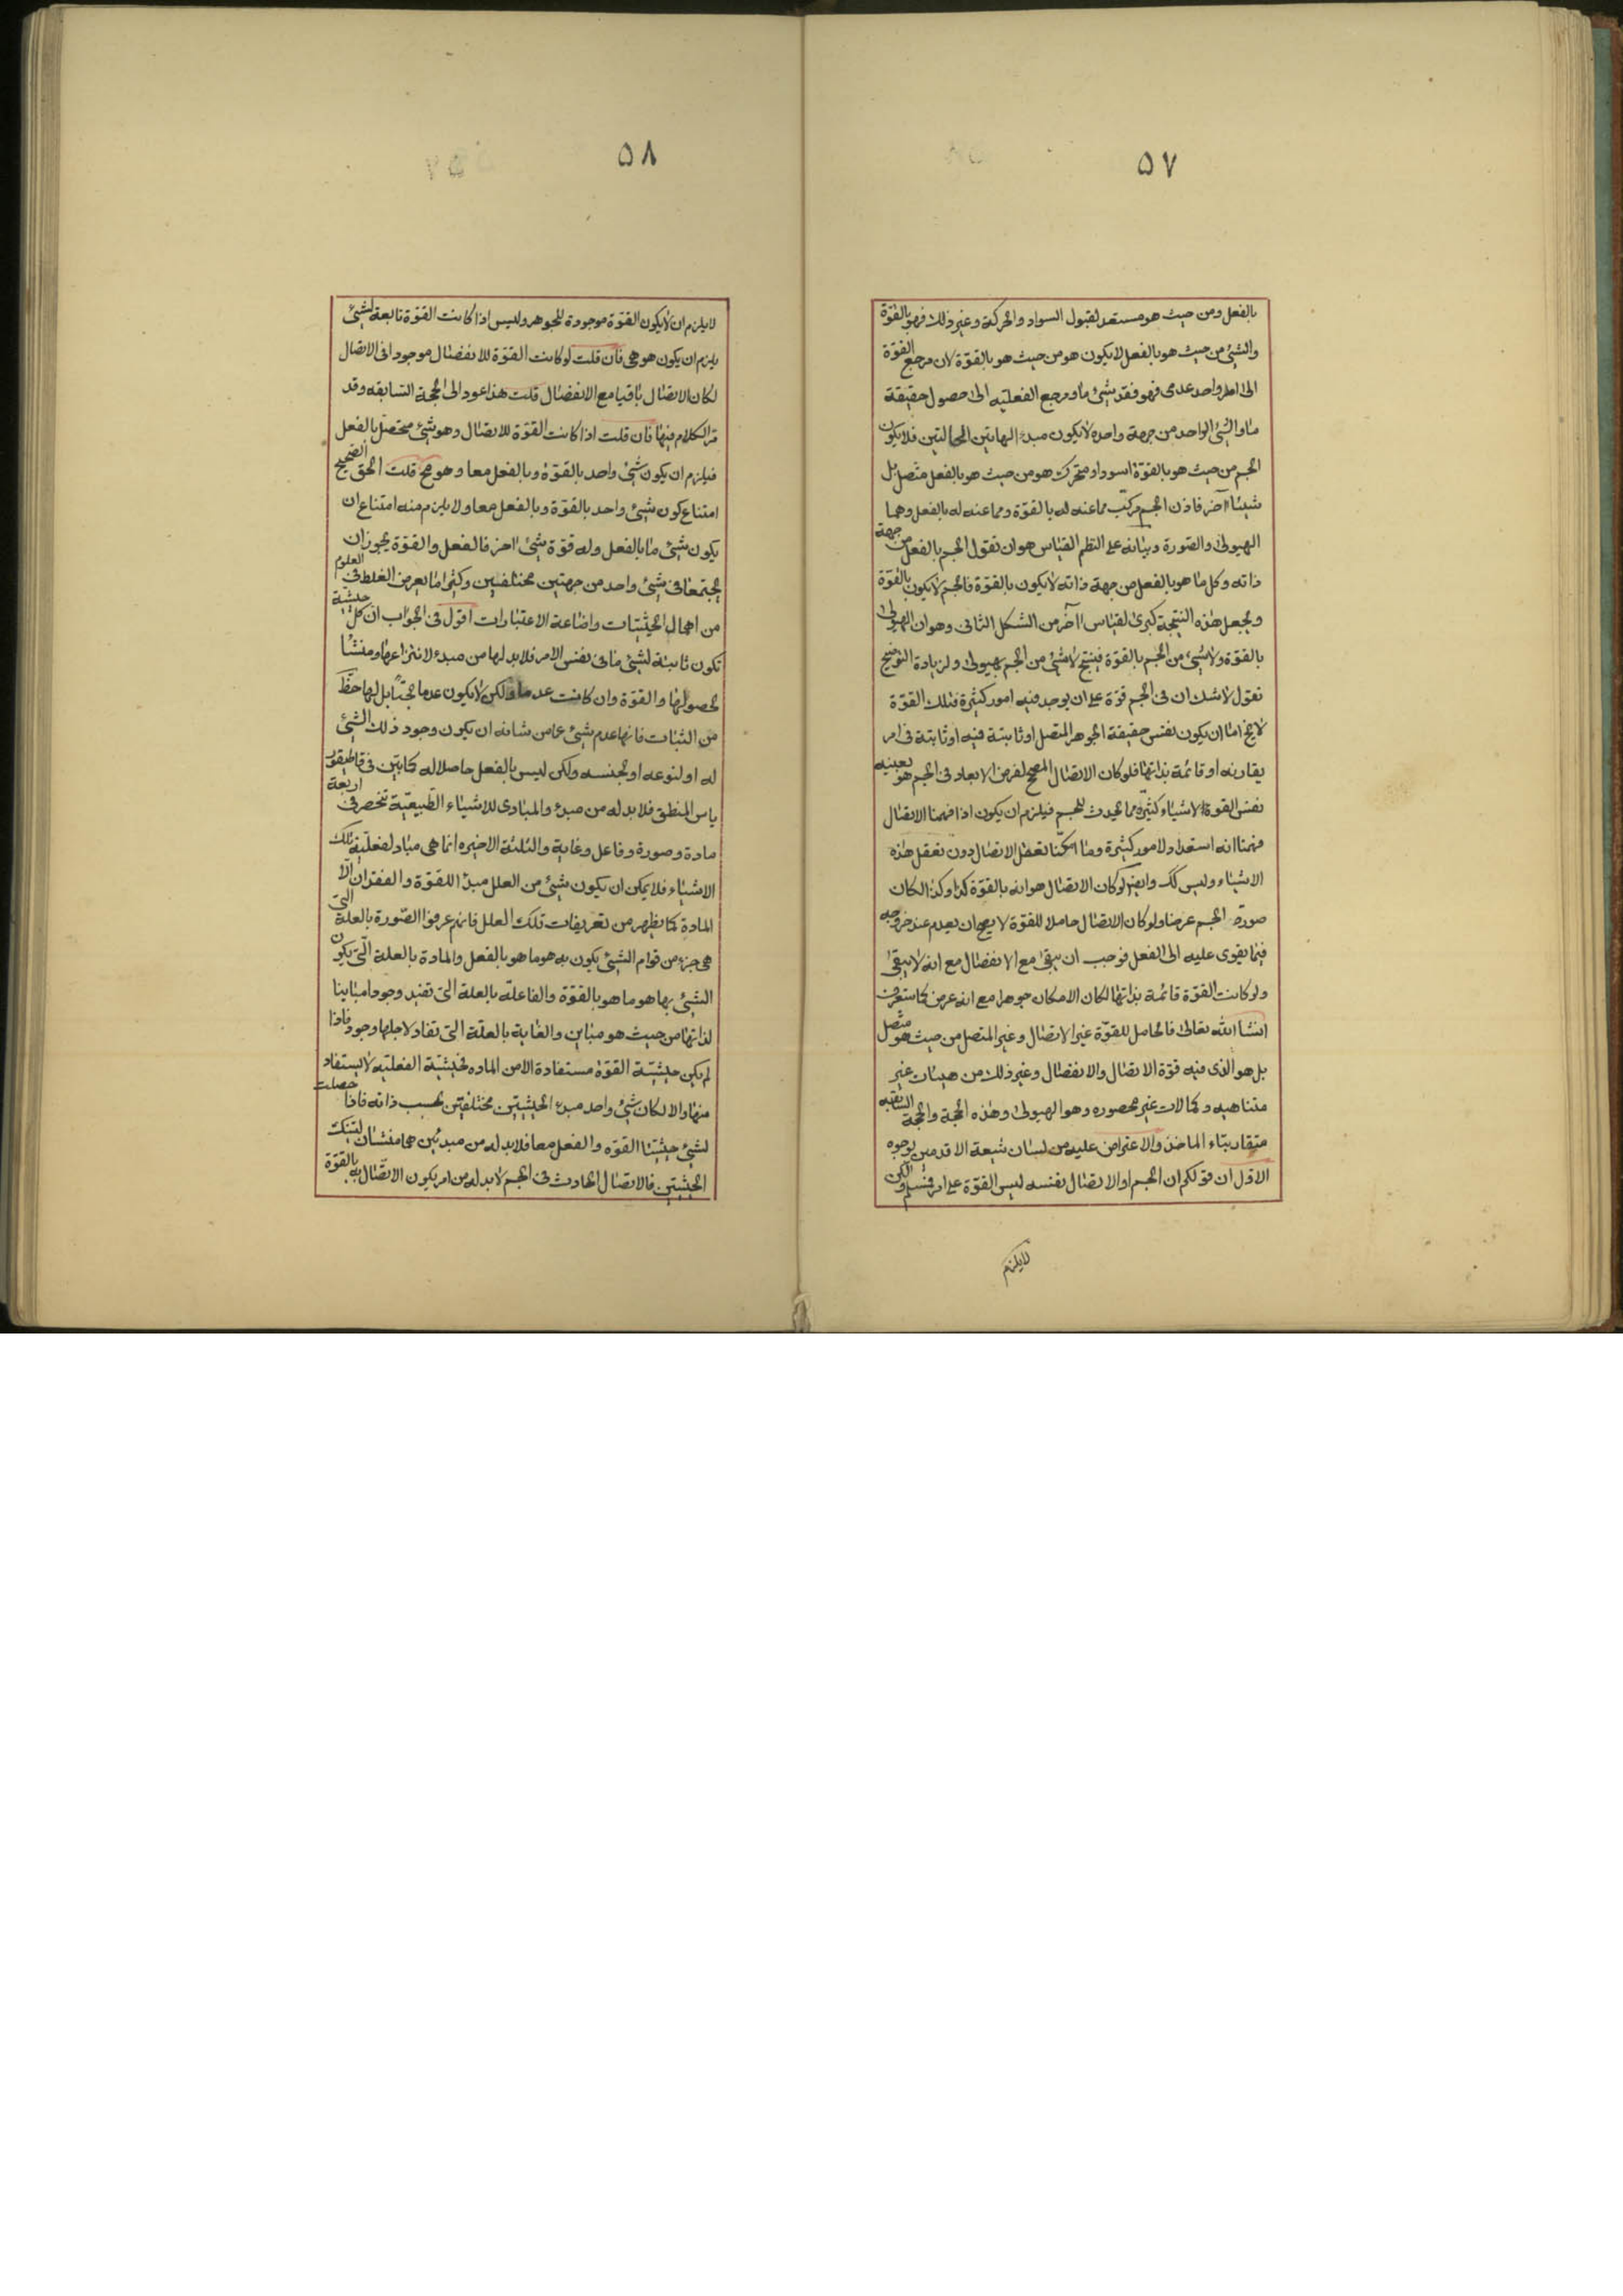 ٥٧
بالفعل ومن حيث هو مستعد لقبول السواد والحركة وغير ذلك فهو بالقوّة
والشئ من حيث هو بالفعل لا يكون هو من حيث هو بالقوّة لان مرجع القوّة
الى امر واحد عدمى فهو فقد شئ ما ومرجع الفعليه الى حصول حقيقة
ما والشئ الواحد من جهة واحده لا يكون مبدء لهاتين الحالتين فلا يكون
الجسم من حيث هو بالقوّة اسود او متحرك هو من حيث هو بالفعل متصل بل
شيئا آخر فاذن الجسم مركّب مما عنه له بالقوة ومما عنه له بالفعل وهما
الهيولى والصّورة وبيانه على النظم القياس هو ان نقول الجسم بالفعل من جهة
ذاته وكل ما هو بالفعل من جهة ذاته لا يكون بالقوّة فالجسم لا يكون بالقوّة
ونجعل هذه النتيجة كبرى لقياس آخر من الشكل الثانى وهو ان الهيولى
بالقوّة ولا شئ من الجسم بالقوّة فينتج لا شئ من الجسم بهيولى ولزيادة التوضيح
نقول لا شك ان فى الجسم قوّة على ان يوجد فيه امور كثيرة فتلك القوّة
لا يخ امّا ان يكون نفس حقيقة الجوهر المتصل او ثابتة فيه او ثابتة فى امر
يقارنه او قائمة بذاتها فلو كان الاتصال المصحح لفرض الابعاد فى الجسم هو بعينه
نفس القوة لاشياء كثيرة مما يحدث للجسم فيلزم ان يكون اذا فهمنا الاتصال
فهمنا انه استعداد لامور كثيرة وما امكننا تعقل الاتصال دون تعقل هذه
الاشياء وليس كك وايضا لو كان الاتصال هو انه بالقوّة كذا وكذا لكان
صورة الجسم عرضا ولو كان الاتصال حاملا للقوّة لا يصح ان يعدم عند خروجه
فيما يقوى عليه الى الفعل فوجب ان يبقى مع الانفصال مع انه لا يبقى
ولو كانت القوّة قائمة بذاتها لكان الامكان جوهرا مع انه عرض كما ستعرف
انشاء الله تعالى فالحامل للقوّة غير الاتصال وغير المتصل من حيث هو متصل
بل هو الذى فيه قوّة الاتصال والانفصال وغير ذلك من هيئات غير
متناهيه وكمالات غير محصوره وهو الهيولى وهذه الحجة والحجة السابقه
متقاربتاء الماخذ والاعتراض عليه من لسان شيعة الاقدمين بوجوه
الاوّل ان قولكم ان الجسم او الاتصال نفسه ليس القوّة على امر فمسلم ولكن
لا يلزم
٥٨
لا يلزم ان لا يكون القوّة موجودة للجوهر وليس اذا كانت القوّة تابعة لشئ
يلزم ان يكون هو هى فان قلت لو كانت القوّة للانفصال موجودا فى الاتصال
لكان الاتصال باقيا مع الانفصال قلت هذا عود الى الحجة السّابقه وقد
مرّ الكلام فيها فان قلت اذا كانت القوّة للاتصال وهو شئ متحصّل بالفعل
فيلزم ان يكون شئ واحد بالقوّة وبالفعل معا وهو مح قلت الحق الصحيح
امتناع كون شئ واحد بالقوّة وبالفعل معا ولا يلزم منه امتناع ان
يكون شئ ما بالفعل وله قوّة شئ اخر فالفعل والقوّة يجوز ان
يجتمعا فى شئ واحد من جهتين مختلفتين وكثيرا ما يعرض الغلط فى العلوم
من اهمال الحيثيّات واضاعة الاعتبارات اقول فى الجواب ان كلّ حيثية
تكون ثابتة لشئ ما فى نفس الامر فلا بد لها من مبدء لانتزاعها ومنشأ
لحصولها والقوّة وان كانت عدما ولكن لا يكون عدما بحتا بل لها حظّ
من الثبات فانها عدم شئ عما من شانه ان يكون وجود ذلك الشئ
له او لنوعه او لجنسه ولكن ليس بالفعل حاصلا له كما بيّن فى قاطيغور
ياس المنطق فلا بد له من مبدء والمبادى للاشياء الطّبيعيّة تنحصر فى اربعة
مادة وصورة وفاعل وغاية والثلثة الاخيره انما هى مباد لفعليّة تلك
الاشياء فلا يمكن ان يكون شئ من العلل مبدءا للقوّة والفقدان الّا
المادة كما يظهر من تعريفات تلك العلل فانهم عرفوا الصّورة بالعلة التى
هى جزء من قوام الشئ يكون به هو ما هو بالفعل والمادة بالعلة الّتى يكون
الشئ بها هو ما هو بالقوّة والفاعلة بالعلة التى تفيد وجودا مباينا
لذاتها من حيث هو مباين والغاية بالعلّة التى تفاد لاجلها وجود فاذا
لم يكن حيثيّة القوّة مستفادة الا من الماده فحيثيّة الفعليه لا يستفاد
منها والا لكان شئ واحد مبدء الحيثيتين مختلفتين بحسب ذاته فاذا حصلت
لشئ حيثيّتا القوّه والفعل معا فلا بد له من مبدئين هما منشئان لتينك
الحيثيتين فالاتصال الحادث فى الجسم لا بد له من امر يكون الاتّصال به بالقوّة